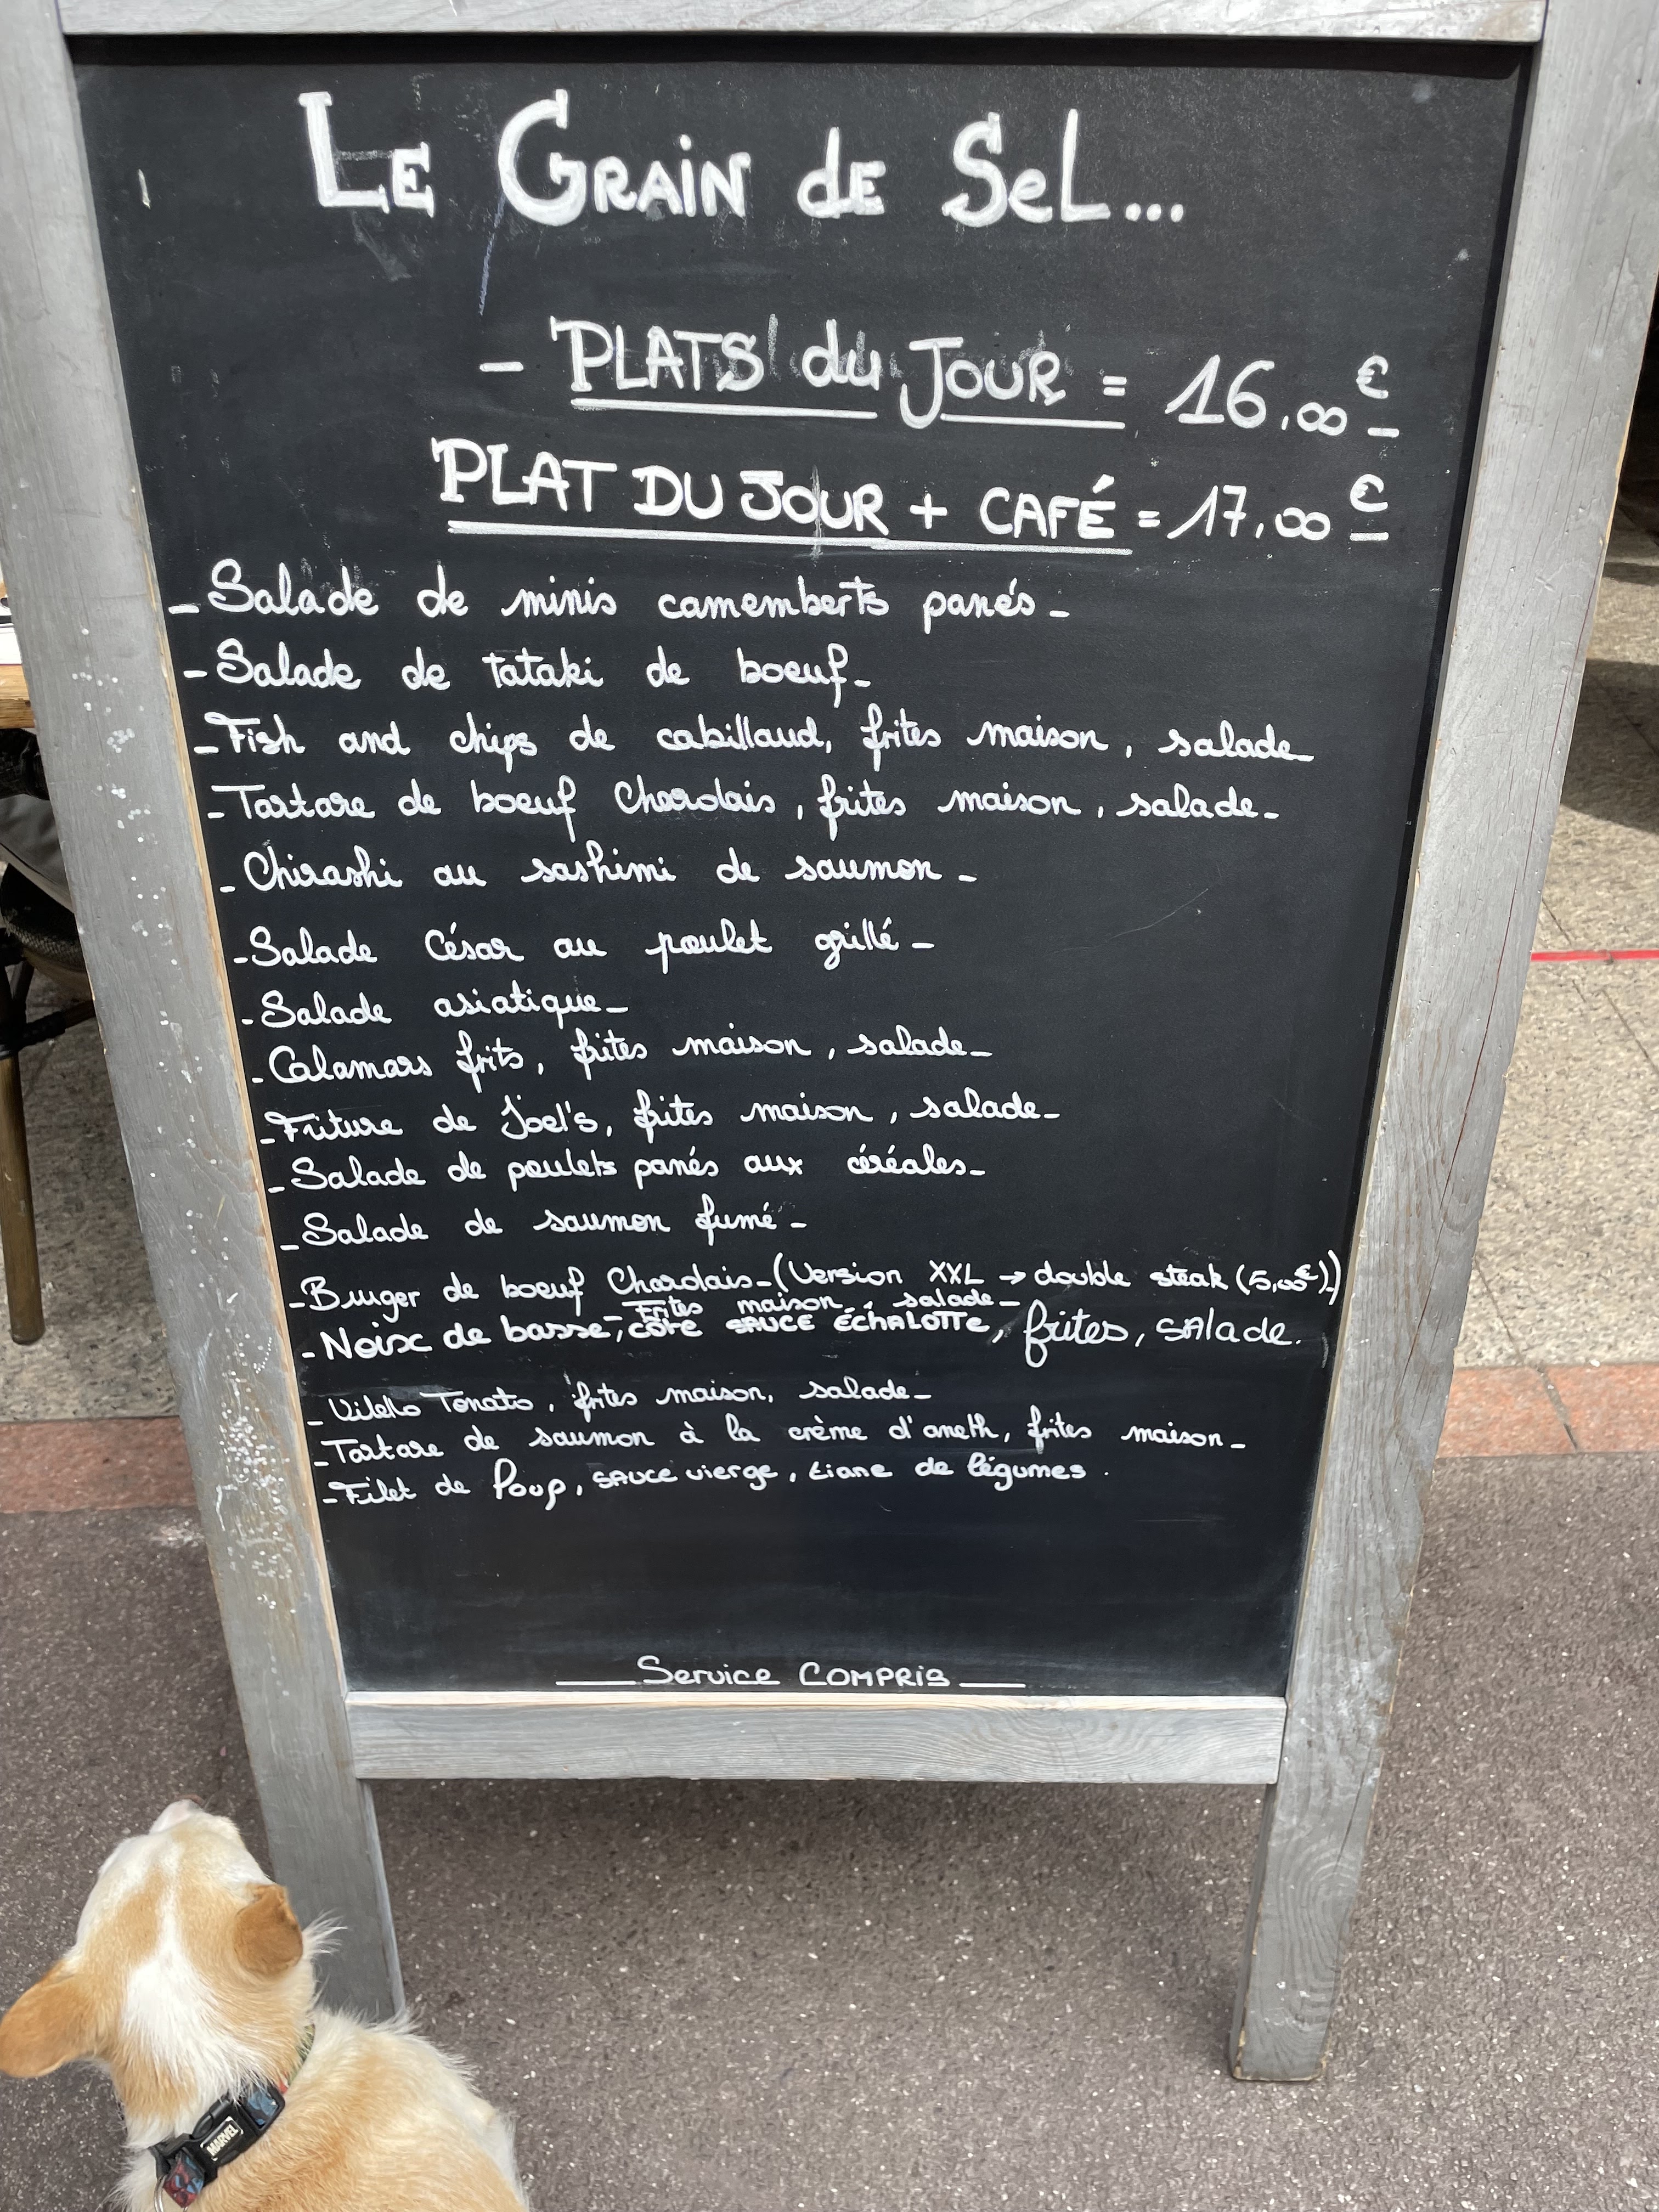 LE GRAIN de SeL...
- PLATS du JOUR = 16,00 €
PLAT DU JOUR + CAFÉ = 17,00 €
- Salade de minis camemberts panés -
- Salade de tataki de boeuf -
- Fish and chips de cabillaud, frites maison, salade -
- Tartare de boeuf Charolais, frites maison, salade -
- Chirashi au sashimi de saumon -
- Salade César au poulet grillé -
- Salade asiatique -
- Calamars frits, frites maison, salade -
- Friture de Joel's, frites maison, salade -
- Salade de poulets panés aux céréales -
- Salade de saumon fumé -
- Burger de boeuf Charolais - (Version XXL → double steak (5,00€))
frites maison, salade -
- Noix de basse, côte SAUCE ÉCHALOTTe, frites, SAlade.
- Vitello Tonato, frites maison, salade -
- Tartare de saumon à la crème d'aneth, frites maison -
- Filet de loup, SAUCE vierge, tiane de légumes.
Service COMPRIS
MARVEL